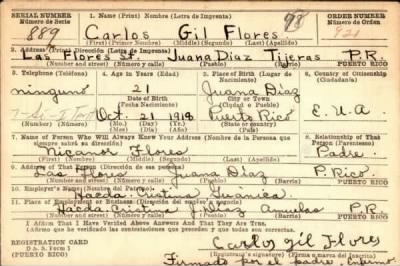 SERIAL NUMBER
Número de Serie
889
1. Name (Print) Nombre (Letra de Imprenta)
98
Carlos Gil Flores
(First) (Primer Nombre) (Middle) (Segundo) (Last) (Apellido)
ORDER NUMBER
Número de Orden
921
2. Address (Print) Dirección (Letra de Imprenta)
Las Flores St. Juana Diaz Tijeras P.R.
(Number and street) (Número y calle) (Town) (Pueblo) (Barrio) PUERTO RICO
3. Telephone (Teléfono)
ninguno
(Number) (Número)
4. Age in Years (Edad)
21
Date of Birth
(Fecha Nacimiento)
Oct. 21 1918
(Mo.) (Day) (Yr.)
(Mes) (Día) (Año)
5. Place of Birth (Lugar de Nacimiento)
Juana Diaz
City or Town
(Ciudad o Pueblo)
Puerto Rico
(State or country)
6. Country of Citizenship
(Ciudadanía)
E.U.A.
7. Name of Person Who Will Always Know Your Address (Nombre de la Persona que siempre sabrá su dirección)
Nicanor Flores
(First) (Nombre) (Middle) (Segundo) (Last) (Apellido)
8. Relationship of That Person (Parentesco)
Padre
9. Address of That Person (Dirección de esa persona)
Las Flores Juana Diaz P. Rico
(Number and street) (Número y calle) (Town) (Pueblo) (Barrio) PUERTO RICO
10. Employer's Name (Nombre del Patrono)
Hacda. Cristina Guanica
11. Place of Employment or Business (Dirección del empleo o negocio)
Hacda. Cristina P.R.
(Number and street) (Número y calle) (Town) (Pueblo) (Barrio) PUERTO RICO
I Affirm That I Have Verified Above Answers and That They Are True.
(Afirmo que he verificado las anteriores contestaciones y que son ciertas)
REGISTRATION CARD
D. S. Form 1
Carlos Gil Flores
(Registrant's signature) (Firma o marca del Inscrito)
Firmado por el padre enfermo